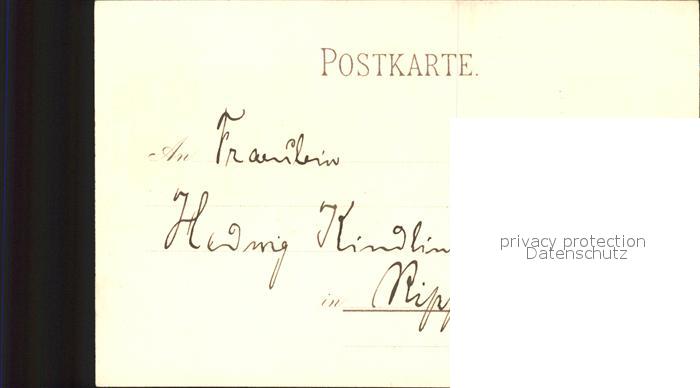 POSTKARTE.
An Fraeulein
Hedwig Kindlin
in Ripp
privacy protection
Datenschutz